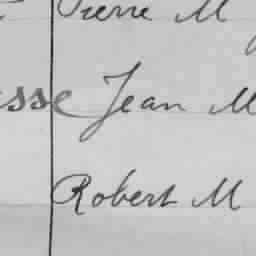 Pierre M
esse Jean M
Robert M